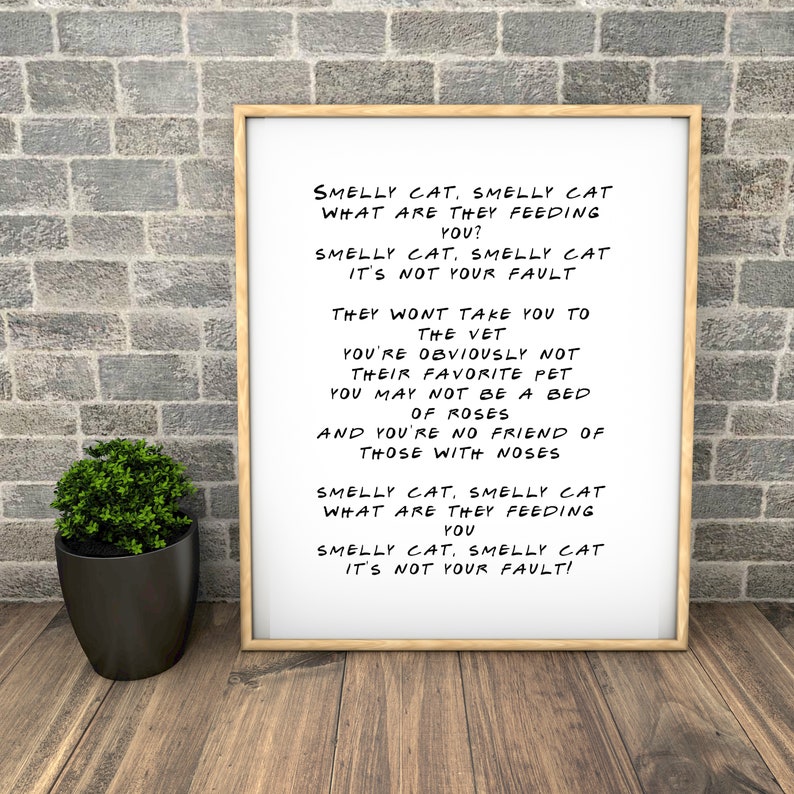 Smelly cat, smelly cat
what are they feeding
you?
smelly cat, smelly cat
it's not your fault
they wont take you to
the vet
you're obviously not
their favorite pet
you may not be a bed
of roses
and you're no friend of
those with noses
smelly cat, smelly cat
what are they feeding
you
smelly cat, smelly cat
it's not your fault!